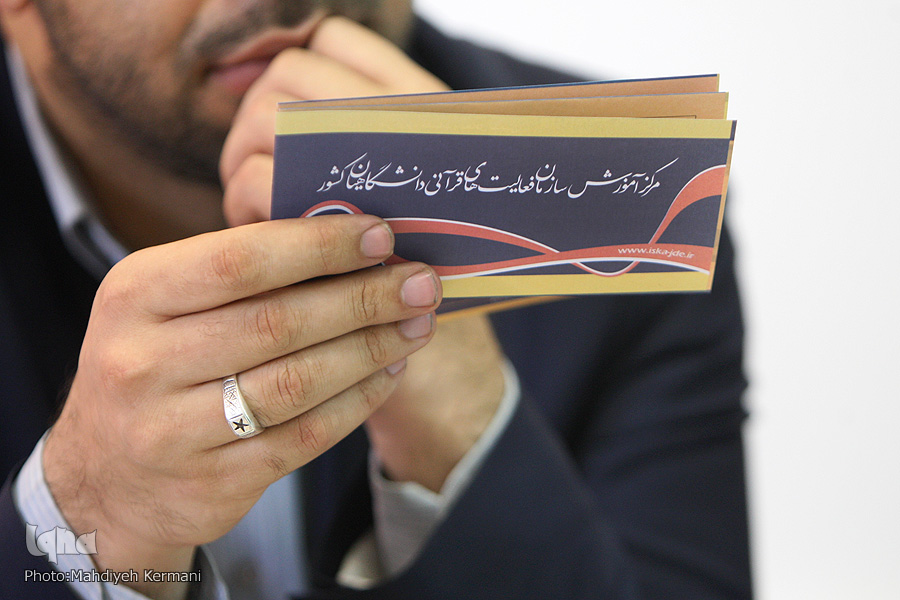 مرکز آموزش سازمان فعالیت‌های قرآنی دانشگاهیان کشور
www.iska-jdc.ir
iqna
Photo:Mahdiyeh Kermani